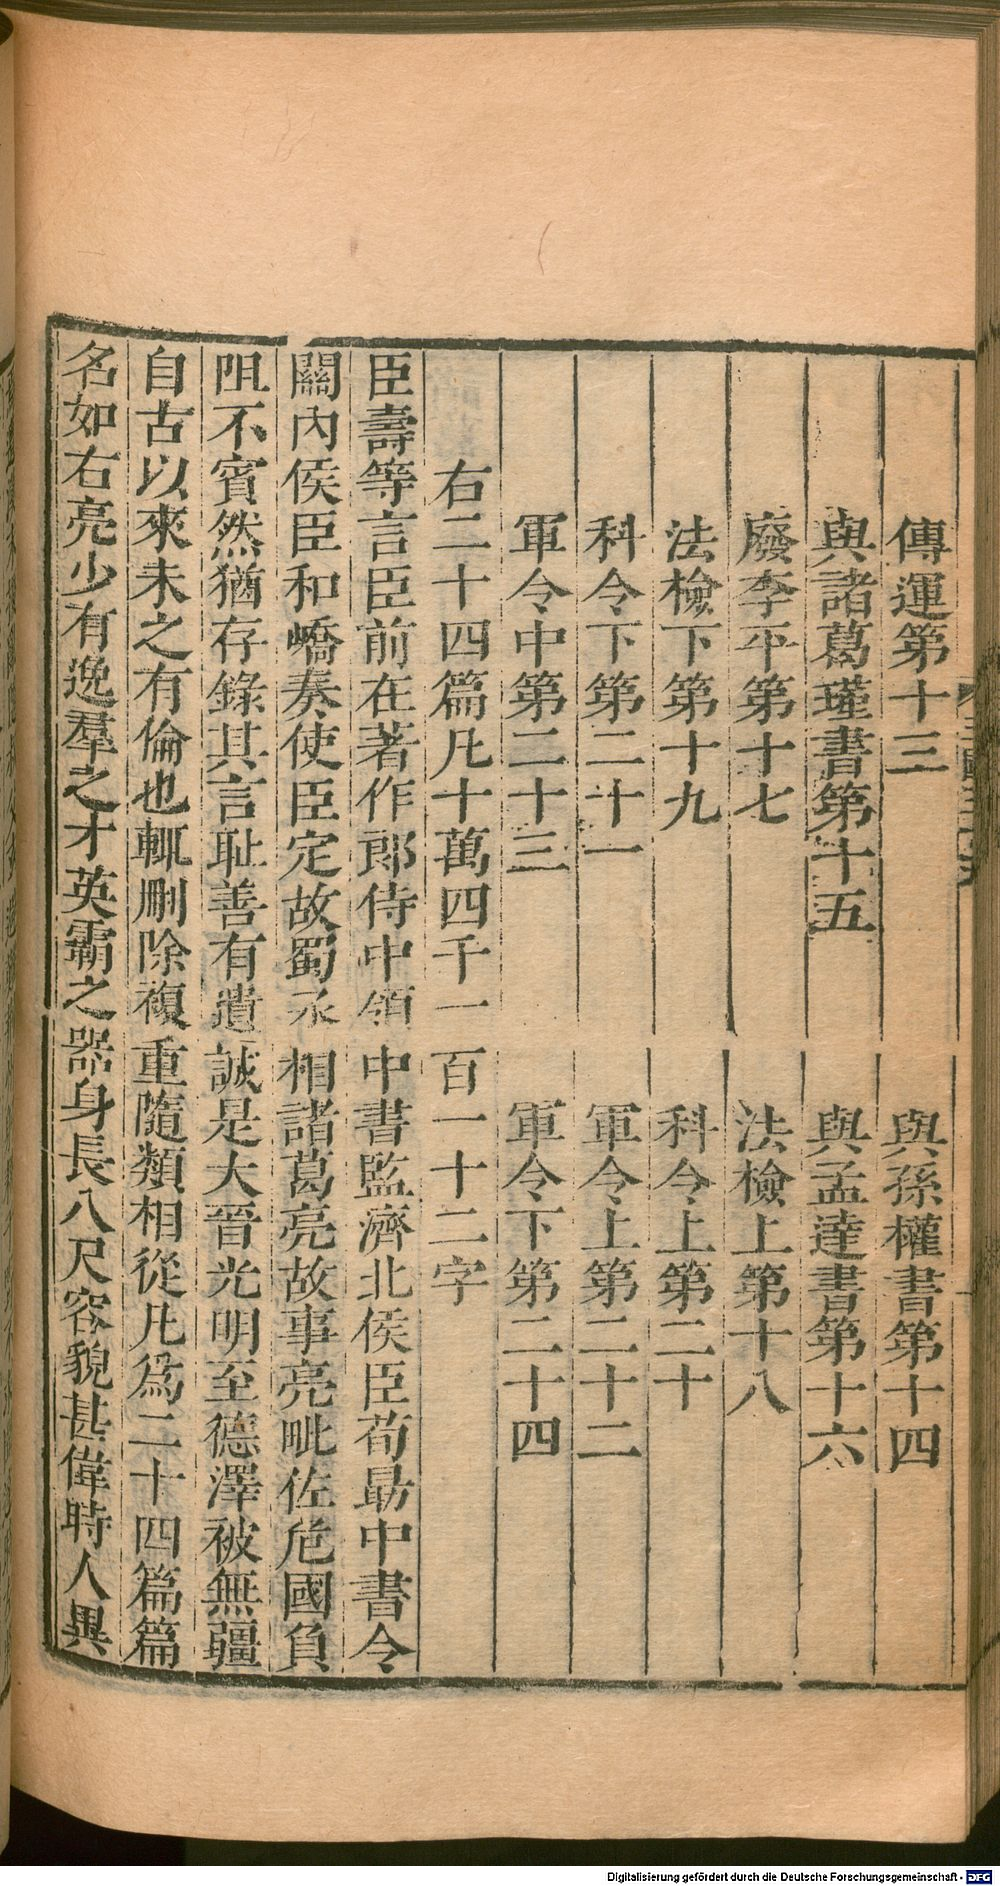 傳運第十三　與孫權書第十四
與諸葛瑾書第十五　與孟達書第十六
廢李平第十七　法檢上第十八
法檢下第十九　科令上第二十
科令下第二十一　軍令上第二十二
軍令中第二十三　軍令下第二十四
右二十四篇凡十萬四千一百一十二字
臣壽等言臣前在著作郎侍中領中書監濟北侯臣荀勗中書令
關內侯臣和嶠奏使臣定故蜀丞相諸葛亮故事亮毗佐危國負
阻不賓然猶存錄其言耻善有遺誠是大晉光明至德澤被無疆
自古以來未之有倫也輒刪除複重隨類相從凡爲二十四篇篇
名如右亮少有逸羣之才英霸之器身長八尺容貌甚偉時人異
Digitalisierung gefördert durch die Deutsche Forschungsgemeinschaft - DFG